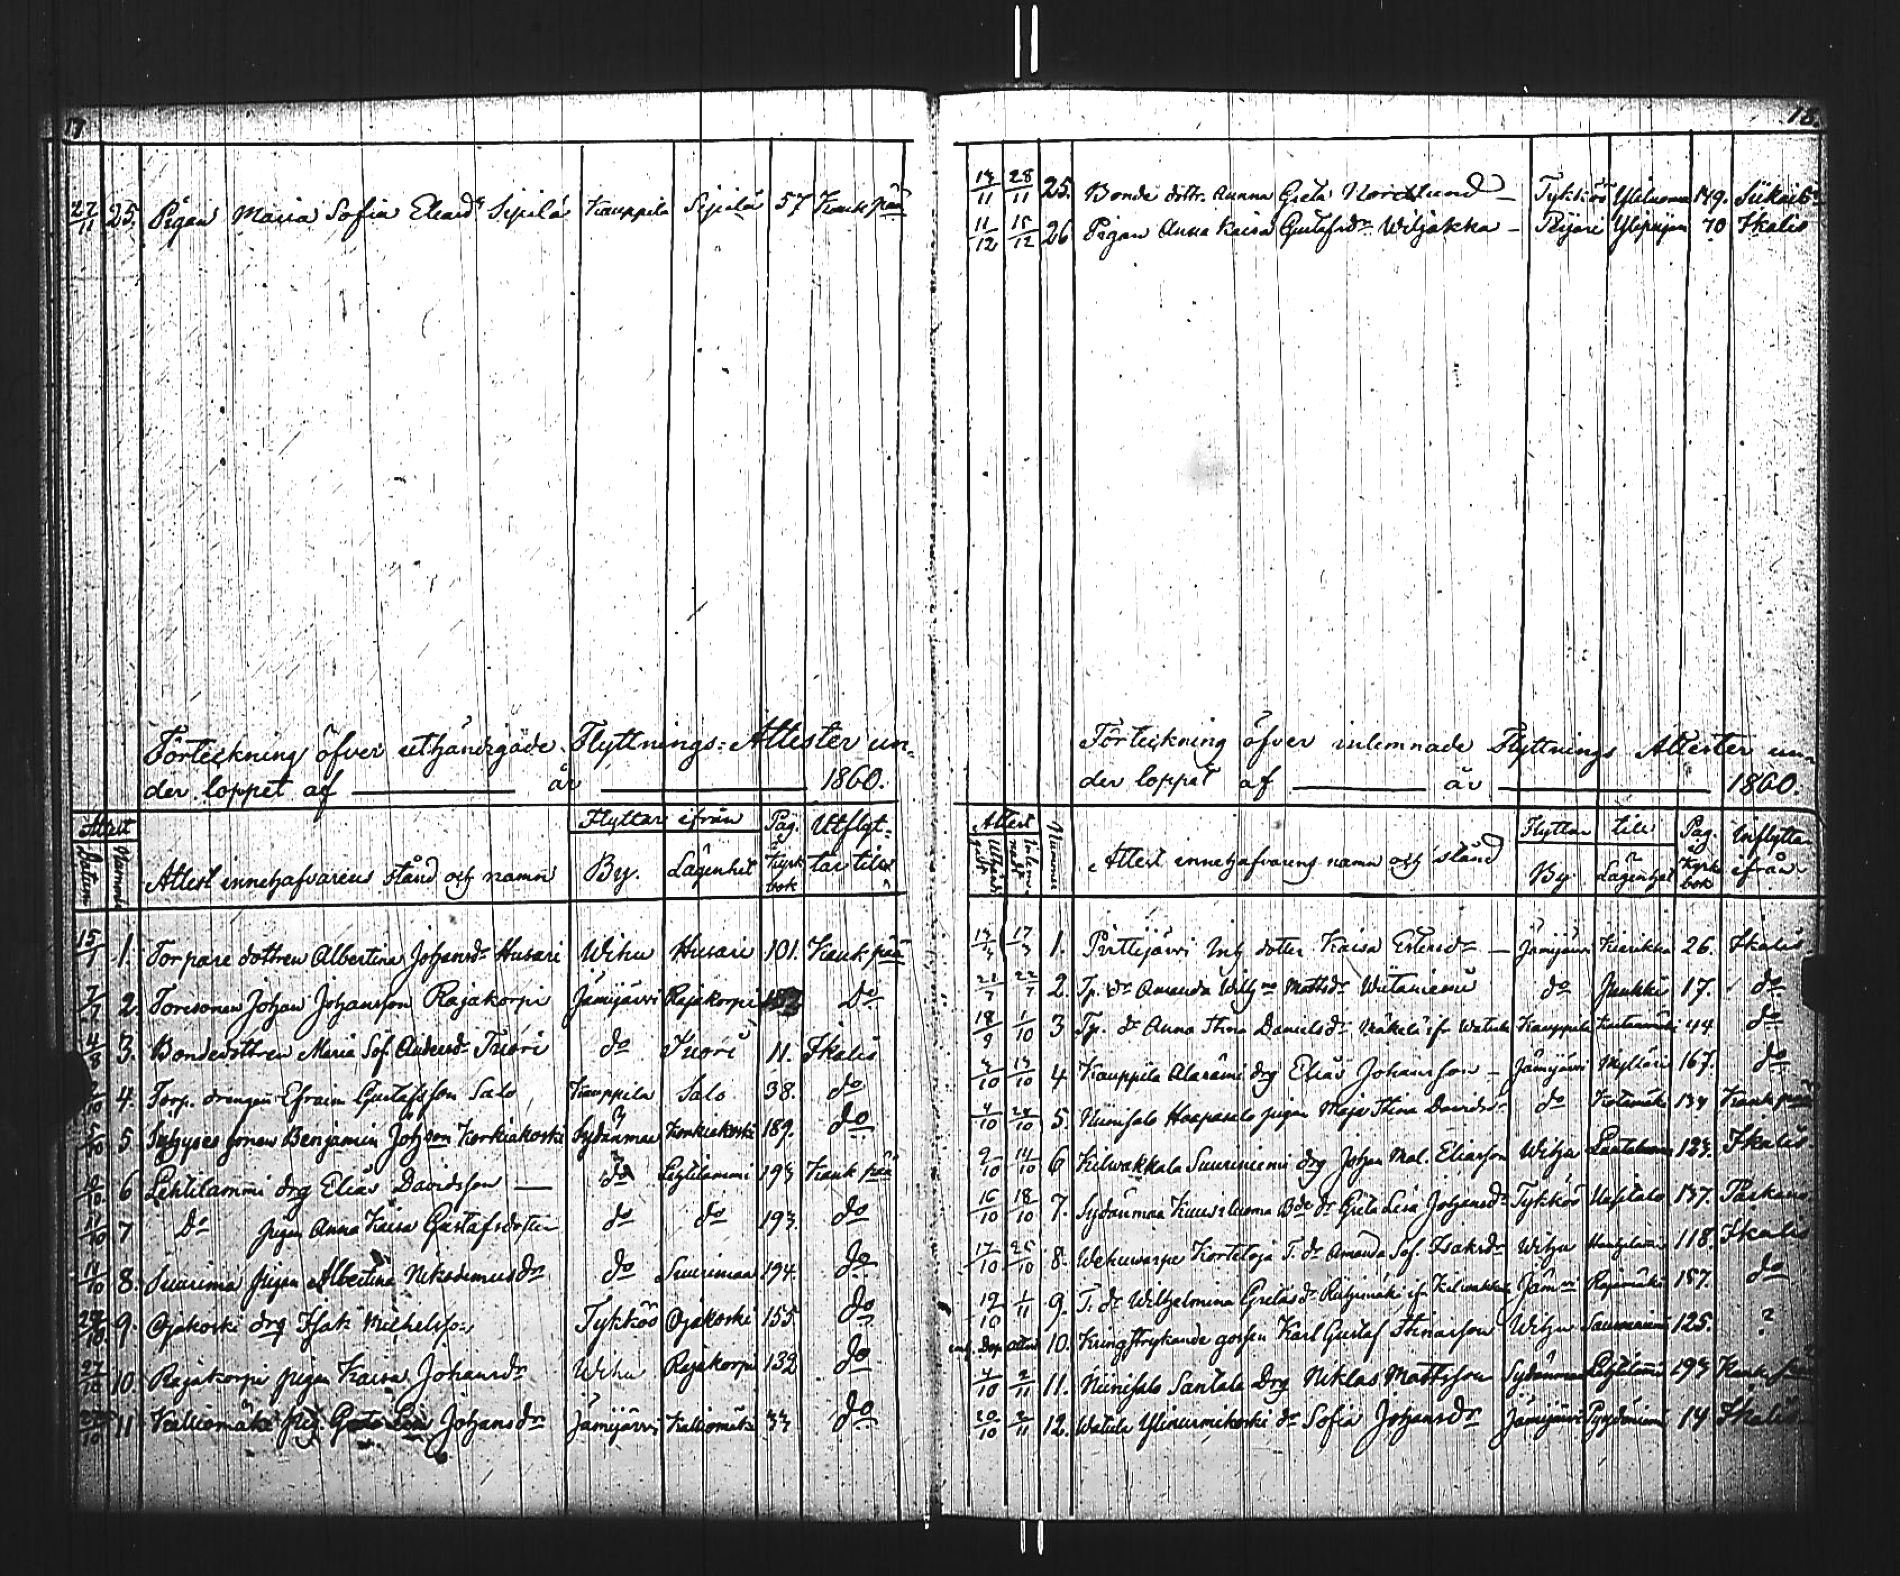 17
27/11 25. Pigan Maria Sofia Eliaedr Sipilä Kauppila Sipilä 57 Kankpää
Förteckning öfver uthändigade Flyttnings=Attester un-
der loppet af år 1860.
Attest Flyttar ifrån Pag. Utflyt-
Datum Nummer Attest innehafvarens stånd och namn By. Lägenhet i Kyrk bok tar till
15/1 1. Torpare dottren Albertina Johansdr Husari Wihu Husari 101. Kankpää
7/7 2. Toresonen Johan Johansson Rajakorpi Jämijärvi Rajakorpi do
4/9 3. Bondedottren Maria Sof. Andersdr Tuori do Tuori 11. Ikalis
4. Torp. drengen Efraim Gustafsson Salo Kauppila Salo 38. do
5 Benjamin Johsson Korkiakoski Sydänmaa Korkiakoski 189. do
6 Lehtilammi drg Elias Davidsson do Lehtilammi 193 Kankpää
7 do pigan Anna Kaisa Gustafsdotter do do 193. do
8. Suurimaa pigan Albertina Nikodemusdr do Suurimaa 194. do
9. Ojakoski drg Isak Michelsson Tykköö Ojakoski 155. do
27/10 10. Rajakorpi pigan Kaisa Johansdr Wihu Rajakorpi 132 do
27/10 11 Kalliomäki pig Greta Lisa Johansdr Jämijärvi Kalliomäki 33 do
18.
14/11 28/11 25. Bonde dottr. Anna Greta Nordlund Tykköö Yliluoma 149. Siikais
11/12 15/12 26 Pigan Anna Kaisa Gustafsdr Wiljakka Peijari Ylipeijari 70 Ikalis
Förteckning öfver inlemnade Flyttnings Attester un-
der loppet af år 1860.
Attest Nummer Flyttar till Pag. Inflyttar
Attest innehafvarens namn och stånd By Lägenhet Kyrko bok ifrån
17/3 1. Inh dotter Kaisa Estersdr Jämijärvi Kierikka 26. Ikalis
22/7 22/7 2. Tp. dr Amanda Wilhna Mattsdr Wiitaniemi do Junkki 17. do
18/9 1/10 3 Tp. dr Anna Stina Danielsdr Mäkelä ifr Watula Kauppila 44 do
4 Kauppila Alarämi drg Elias Johansson Jämijärvi Mylläri 167. do
4/10 5. Niinisalo Haapasalo pigan Maja Stina Davidsdr do 134 Kankpää
9/10 14/10 6 Kilwakkala Suuriniemi drg Johan Mal. Eliasson Wihu 123. Ikalis
16/10 18/10 7. Sydänmaa Kuusiluoma Bde dr Greta Lisa Johansdr Tykköö Uusitalo 137. Parkano
17/10 25/10 8. Wehuwarpe Kortetoja T. dr Amanda Sof. Isaksdr Wihu 118. Ikalis
19/10 1/11 9. T. dr Wilhelmina Gretasdr Riihimäki if. Kilwakka Jämvi Rajamäki 157. do
10. Kringstrykande gossen Karl Gustaf Stinasson Wihu 125. ?
4/10 2/11 11. Niinisalo Santala Drg Niklas Mattsson Sydänmaa Lehtilammi 193 Kankpää
20/10 2/11 12. Watula Ylinurmikoski dr Sofia Johansdr Jämijärvi Pyydönniemi 14 Ikalis